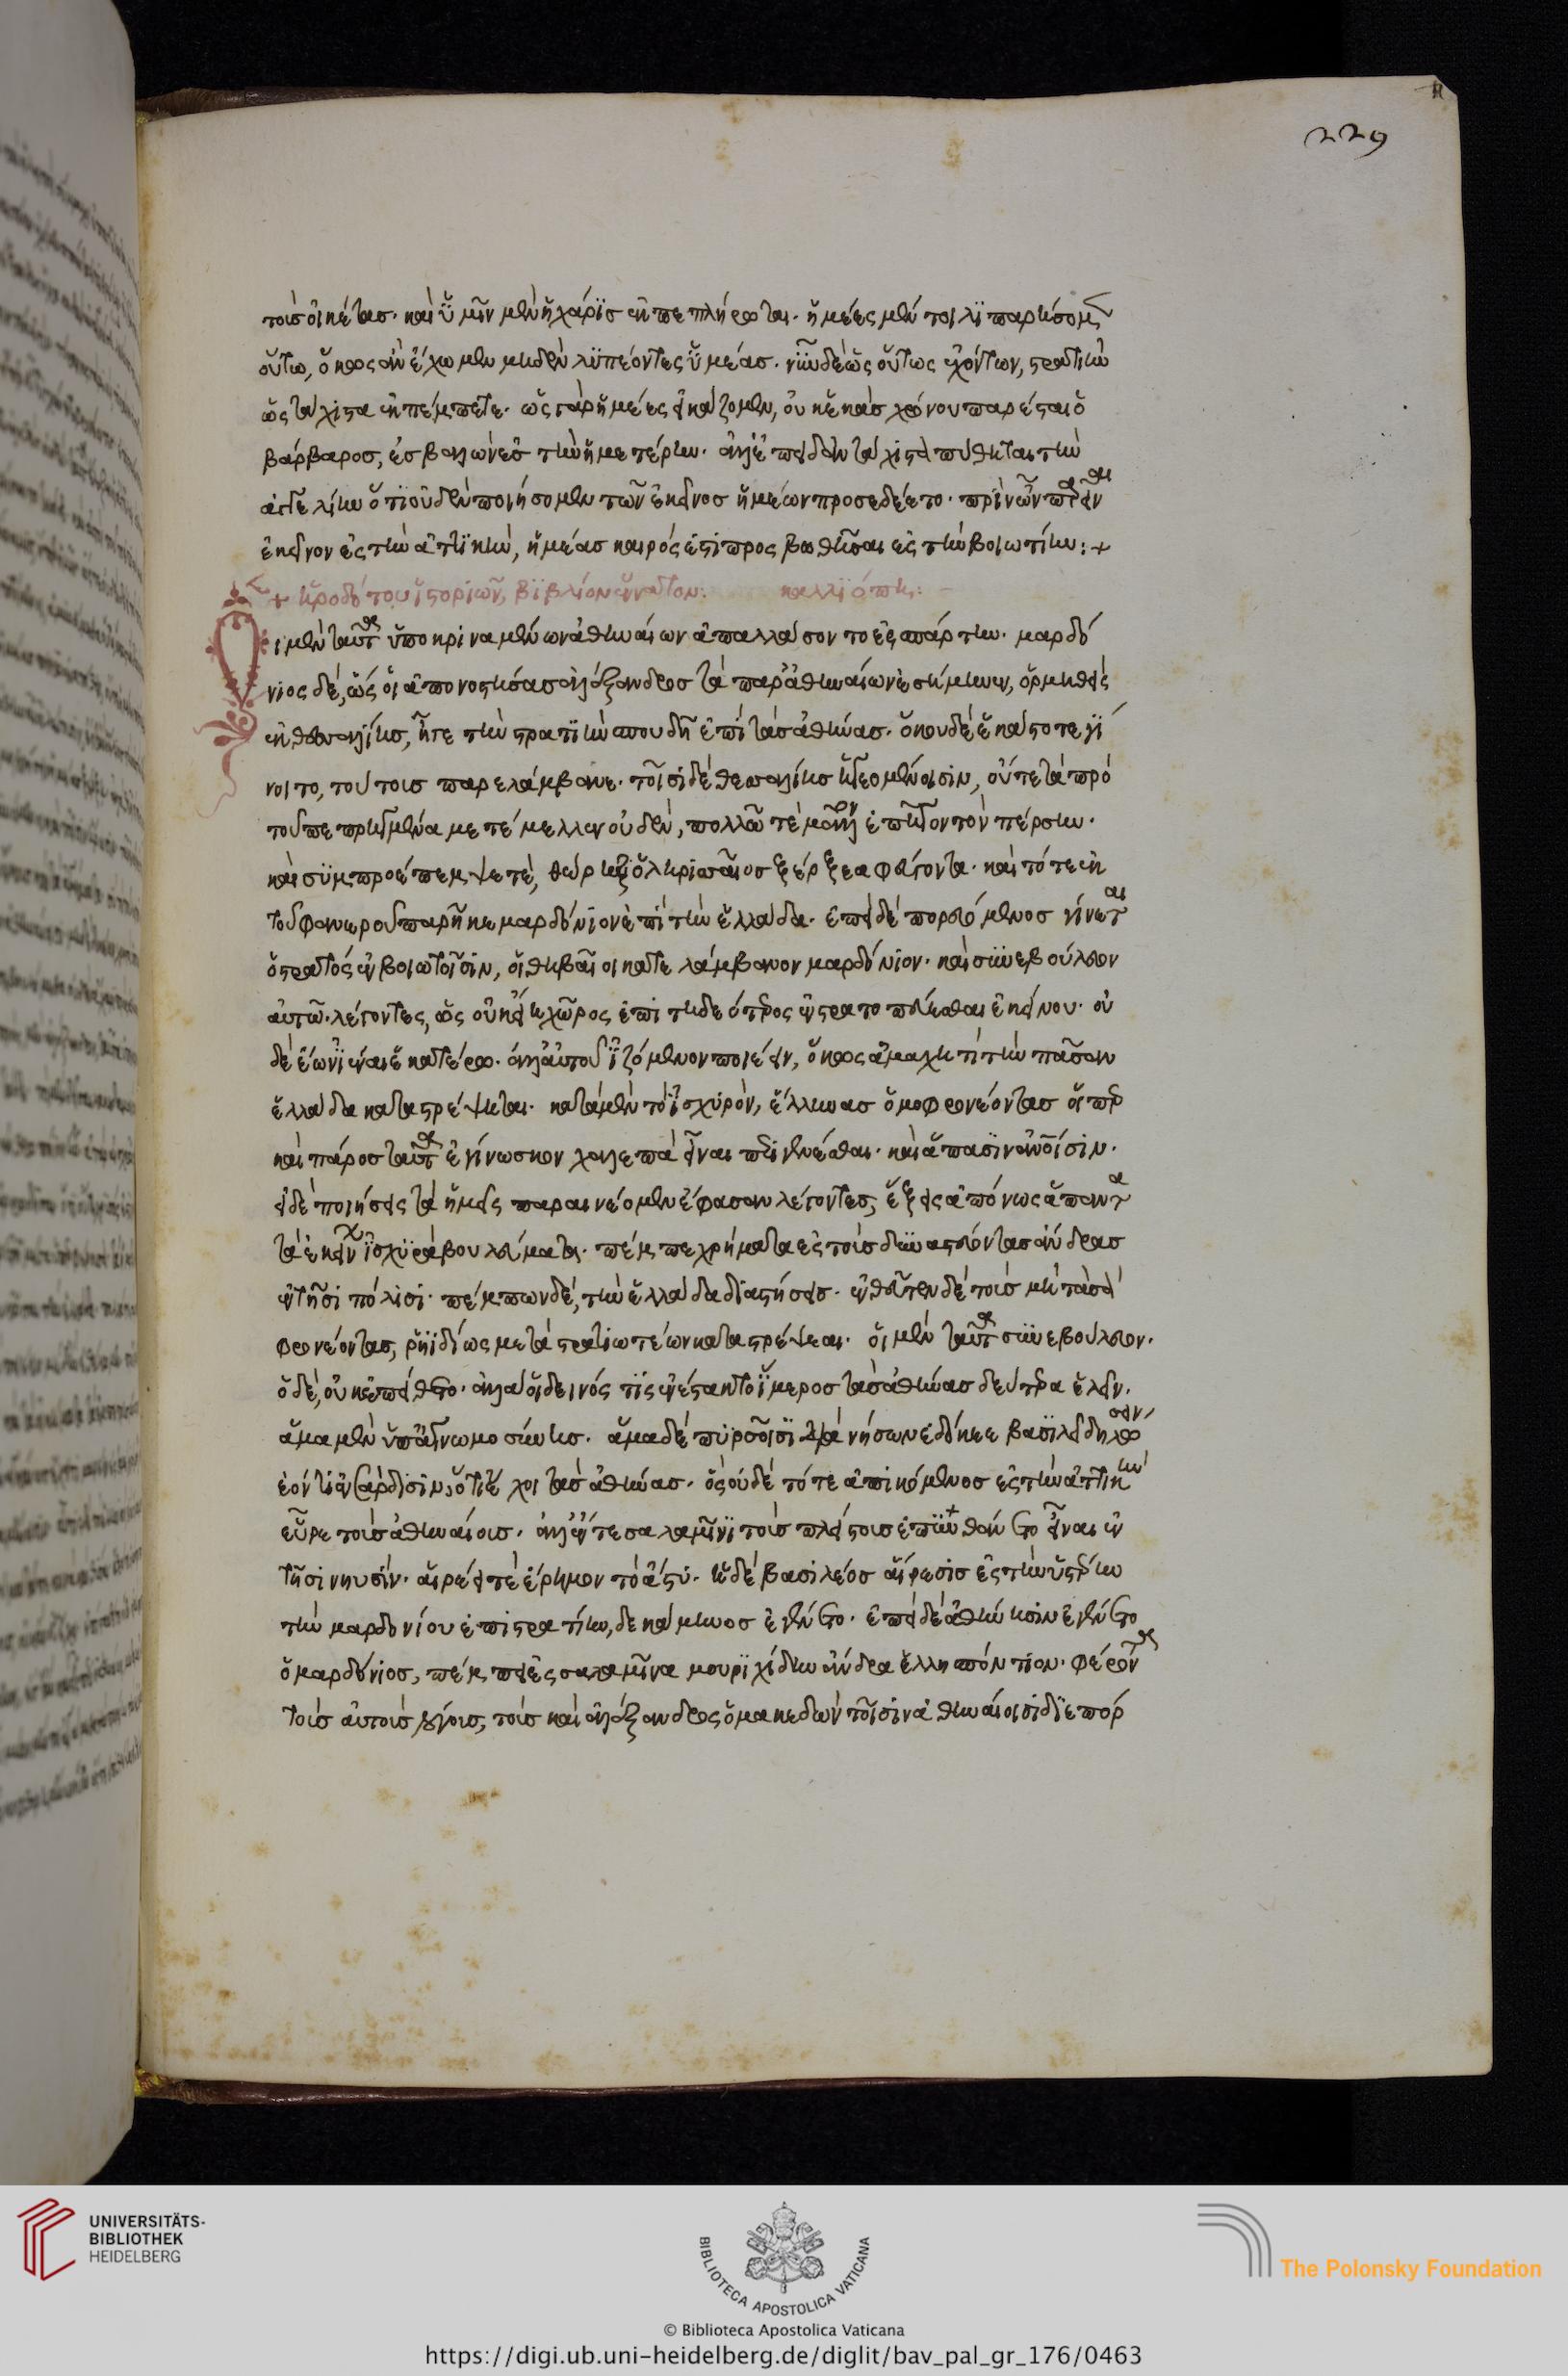 229
τοὺς οἰκέτας. καὶ ὑμῖν μὲν ἡ χάρις ἐκπεπλήρωται. ἡμέες μέντοι λιπαρήσομεν
οὕτω, ὅκως ἂν ἔχωμεν μηδὲν λυπέοντες ὑμέας. νῦν δὲ ὡς οὕτως ἐχόντων, στρατιὴν
ὡς τάχιστα ἐκπέμπετε. ὡς γὰρ ἡμέες εἰκάζομεν, οὐκ ἑκὰς χρόνου παρέσται ὁ
βάρβαρος, ἐσβαλὼν ἐς τὴν ἡμετέρην. ἀλλ' ἐπειδὰν τάχιστα πύθηται τὴν
ἀγγελίην ὅτι οὐδὲν ποιήσομεν τῶν ἐκεῖνος ἡμέων προσεδέετο. πρὶν ὦν παρεῖναι
ἐκεῖνον ἐς τὴν ἀττικὴν, ἡμέας καιρός ἐστι προσβωθῆσαι ἐς τὴν βοιωτίην:+
+ ἡροδότου ἱστοριῶν, βιβλίον ἔνατον: καλλιόπη:
Οἱ μὲν ταῦτα ὑποκριναμένων ἀθηναίων ἀπαλλάσσοντο ἐς σπάρτην. μαρδό
νιος δέ, ὥς οἱ ἀπονοστήσας ἀλέξανδρος τὰ παρ' ἀθηναίων ἐσήμηνεν, ὁρμηθεὶς
ἐκ θεσσαλίης, ἦγε τὴν στρατιὴν σπουδῇ ἐπὶ τὰς ἀθήνας. ὅκου δὲ ἑκάστοτε γί
νοιτο, τούτους παρελάμβανε. τοῖσι δὲ θεσσαλίης ἡγεομένοισιν, οὔτε τὰ πρὸ
τοῦ πεπρηγμένα μετέμελλεν οὐδέν, πολλῷ τε μᾶλλον ἐπῆγον τὸν πέρσην.
καὶ συμπροέπεμψέ τε, θώρηξ ὁ ληρισσαῖος ξέρξεα φεύγοντα. καὶ τότε ἐκ
τοῦ φανεροῦ παρῆκε μαρδόνιον ἐπὶ τὴν ἑλλάδα. ἐπεὶ δὲ πορευόμενος γίνεται
ὁ στρατὸς ἐν βοιωτοῖσιν, οἱ θηβαῖοι κατελάμβανον μαρδόνιον. καὶ συνεβούλευον
αὐτῷ. λέγοντες, ὡς οὐκ εἴη χῶρος ἐπιτηδεότερος ἐνστρατοπεδεύεσθαι ἐκείνου. οὐ
δὲ ἔων ἰέναι ἑκατέρω. ἀλλ' αὐτοῦ ἱζόμενον ποιέειν, ὅκως ἀμαχητὶ τὴν πᾶσαν
ἑλλάδα καταστρέψηται. κατὰ μὲν τὸ ἰσχυρὸν, ἕλληνας ὁμοφρονέοντας οἵπερ
καὶ πάρος ταῦτα ἐγίνωσκον χαλεπὰ εἶναι περιγενέσθαι. καὶ ἅπασιν ἀνθρώποισιν.
εἰ δὲ ποιήσεις τὰ ἡμεῖς παραινέομεν ἔφασαν λέγοντες, ἕξεις ἀπόνως ἅπαντα
τὰ ἐκείνων ἰσχυρὰ βουλεύματα. πέμπε χρήματα ἐς τοὺς δυναστεύοντας ἄνδρας
ἐν τῇσι πόλισι. πέμπων δέ, τὴν ἑλλάδα διαστήσεις. ἐνθεῦτεν δὲ τοὺς μὴ τὰ σὰ
φρονέοντας, ῥηϊδίως μετὰ στρατιωτέων καταστρέψεαι. οἱ μὲν ταῦτα συνεβούλευον.
ὁ δέ, οὐκ ἐπείθετο. ἀλλά οἱ δεινός τις ἐνέστακτο ἵμερος τὰς ἀθήνας δεύτερα ἑλεῖν.
ἅμα μὲν ὑπ' ἀγνωμοσύνης. ἅμα δὲ πυρσοῖσι διὰ νήσων ἐδόκεε βασιλεῖ δηλώσειν
ἐόντι ἐν σάρδισιν, ὅτι ἔχοι τὰς ἀθήνας. ὃς οὐδὲ τότε ἀπικόμενος ἐς τὴν ἀττικὴν
εὗρε τοὺς ἀθηναίους. ἀλλ' ἔν τε σαλαμῖνι τοὺς πλείστους ἐπυνθάνετο εἶναι ἔν
τῇσι νηυσίν. αἱρέει τε ἔρημον τὸ ἄστυ. ἡ δὲ βασιλέος αἵρεσις ἐς τὴν ὑστέρην
τὴν μαρδονίου ἐπιστρατίην, δεκάμηνος ἐγένετο. ἐπεὶ δὲ ἀθήνησιν ἐγένετο
ὁ μαρδόνιος, πέμπει ἐς σαλαμῖνα μουριχίδην ἄνδρα ἑλλησπόντιον. φέροντα
τοὺς αὐτοὺς λόγους, τοὺς καὶ ἀλέξανδρος ὁ μακεδὼν τοῖσιν ἀθηναίοισι διεπόρ
UNIVERSITÄTS-
BIBLIOTHEK
HEIDELBERG
BIBLIOTECA APOSTOLICA VATICANA
The Polonsky Foundation
© Biblioteca Apostolica Vaticana
https://digi.ub.uni-heidelberg.de/diglit/bav_pal_gr_176/0463